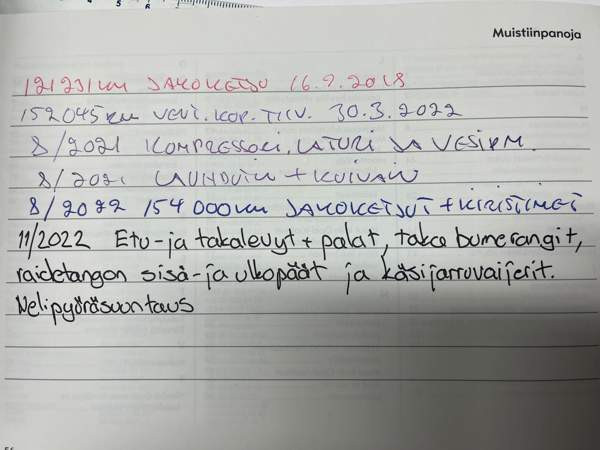 Muistiinpanoja
121231km JAKOKETJU 16.9.2018
152045km VENT.KOP.TIIV. 30.3.2022
8/2021 KOMPRESSORI, LATURI JA VESIPM.
8/2021 LAUHDUTIN + KUIVAIN
8/2022 154 000km JAKOKETJUT + KIRISTIMET
11/2022 Etu-ja takalevyt + palat, taka bumerangit,
raidetangon sisä-ja ulkopäät ja käsijarruvaijerit.
Nelipyöräsuuntaus